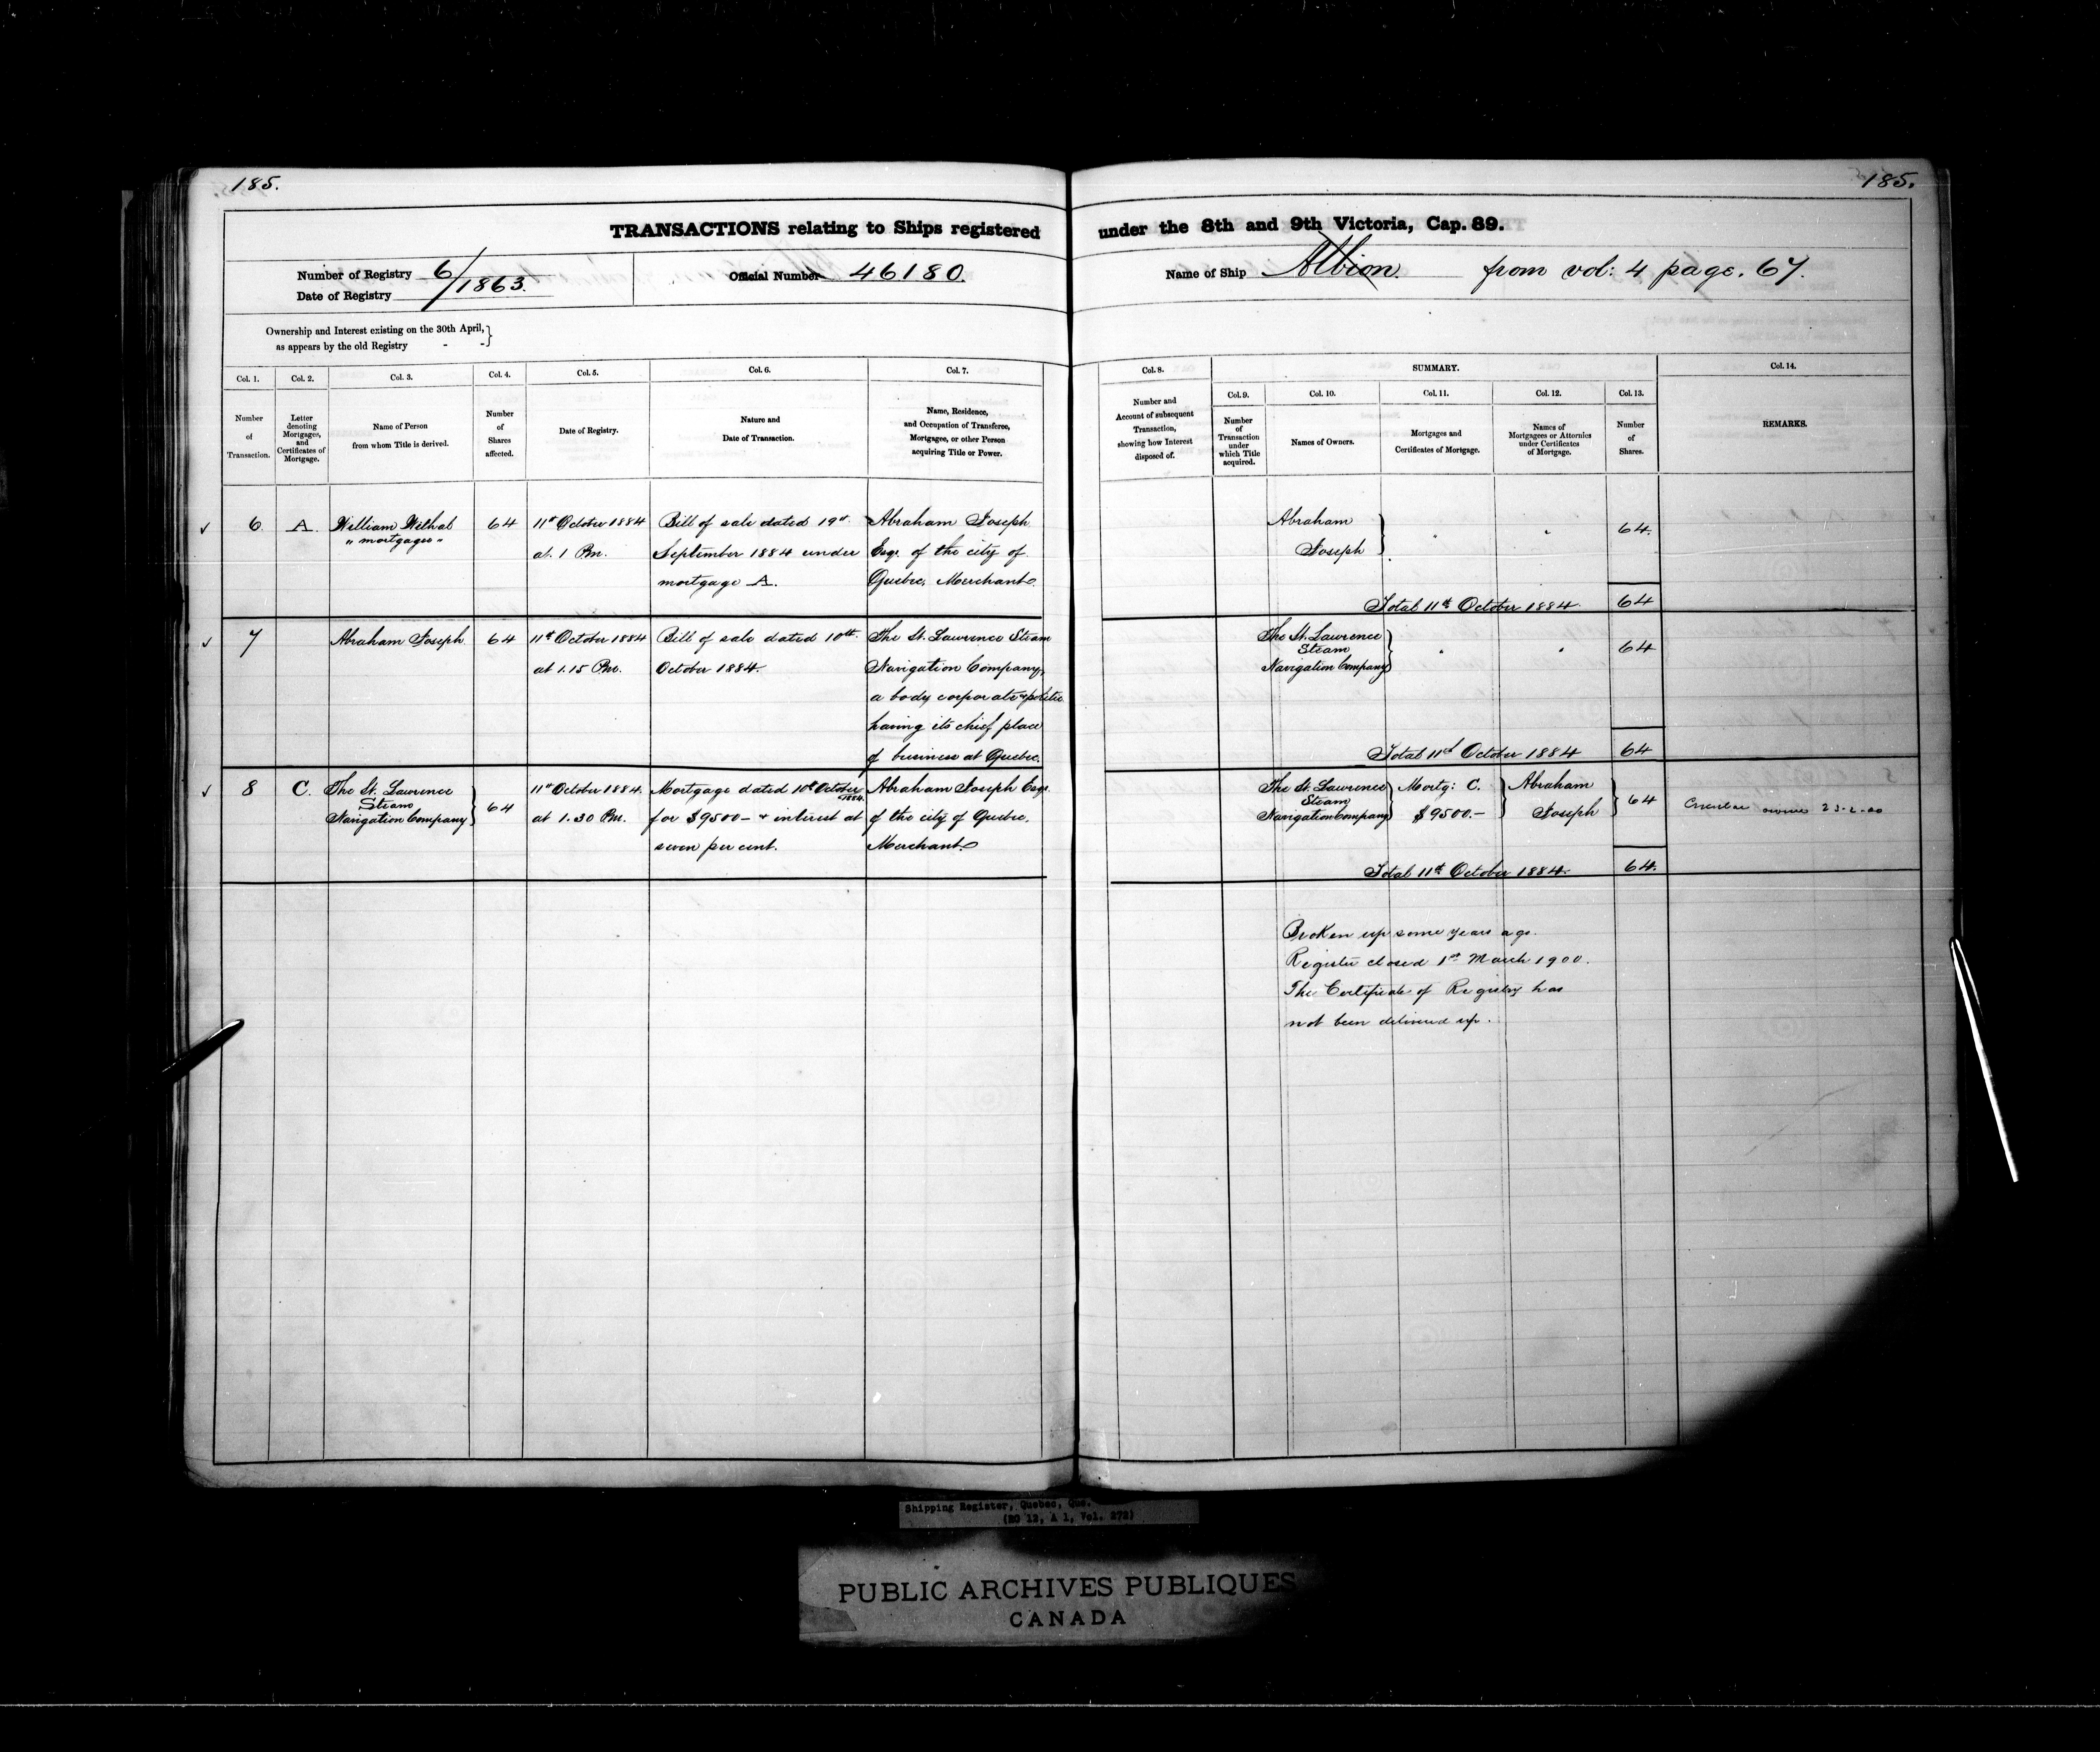 185.
185.
TRANSACTIONS relating to Ships registered under the 8th and 9th Victoria, Cap. 89.
Number of Registry 6/1863.
Date of Registry
Official Number 46180.
Name of Ship Albion from vol: 4 page. 67.
Ownership and Interest existing on the 30th April,
as appears by the old Registry - -
Col. 1.
Number
of
Transaction.
Col. 2.
Letter
denoting
Mortgages,
and
Certificates of
Mortgage.
Col. 3.
Name of Person
from whom Title is derived.
Col. 4.
Number
of
Shares
affected.
Col. 5.
Date of Registry.
Col. 6.
Nature and
Date of Transaction.
Col. 7.
Name, Residence,
and Occupation of Transferee,
Mortgagee, or other Person
acquiring Title or Power.
Col. 8.
Number and
Account of subsequent
Transaction,
showing how Interest
disposed of.
SUMMARY.
Col. 9.
Number
of
Transaction
under
which Title
acquired.
Col. 10.
Names of Owners.
Col. 11.
Mortgages and
Certificates of Mortgage.
Col. 12.
Names of
Mortgagees or Attornies
under Certificates
of Mortgage.
Col. 13.
Number
of
Shares.
Col. 14.
REMARKS.
6.
A.
William
" mortgagee "
64
11th October 1884
at 1 Pm.
Bill of sale dated 19th
September 1884 under
mortgage A.
Abraham Joseph
Esqr. of the city of
Quebec, Merchant.
Abraham
Joseph
64.
Total 11th October 1884.
64
7
Abraham Joseph
64
11th October 1884
at 1.15 Pm.
Bill of sale dated 10th
October 1884.
The St. Lawrence Steam
Navigation Company,
a body corporate & politic
having its chief place
of business at Quebec.
The St. Lawrence
Steam
Navigation Company
64
Total 11th October 1884
64
8
C.
The St. Lawrence
Steam
Navigation Company
64
11th October 1884.
at 1.30 Pm.
Mortgage dated 10th October
1884.
for $9500 — & interest at
seven per cent.
Abraham Joseph Esqr.
of the city of Quebec,
Merchant.
The St. Lawrence
Steam
Navigation Company
Mortg: C.
$9500.—
Abraham
Joseph
64
Circular owner 23-2-00
Total 11th October 1884.
64.
Broken up some years ago.
Register closed 1st March 1900.
The Certificate of Registry has
not been delivered up.
Shipping Register, Quebec, Que.
(RG 12, A 1, Vol. 272)
PUBLIC ARCHIVES PUBLIQUES
CANADA